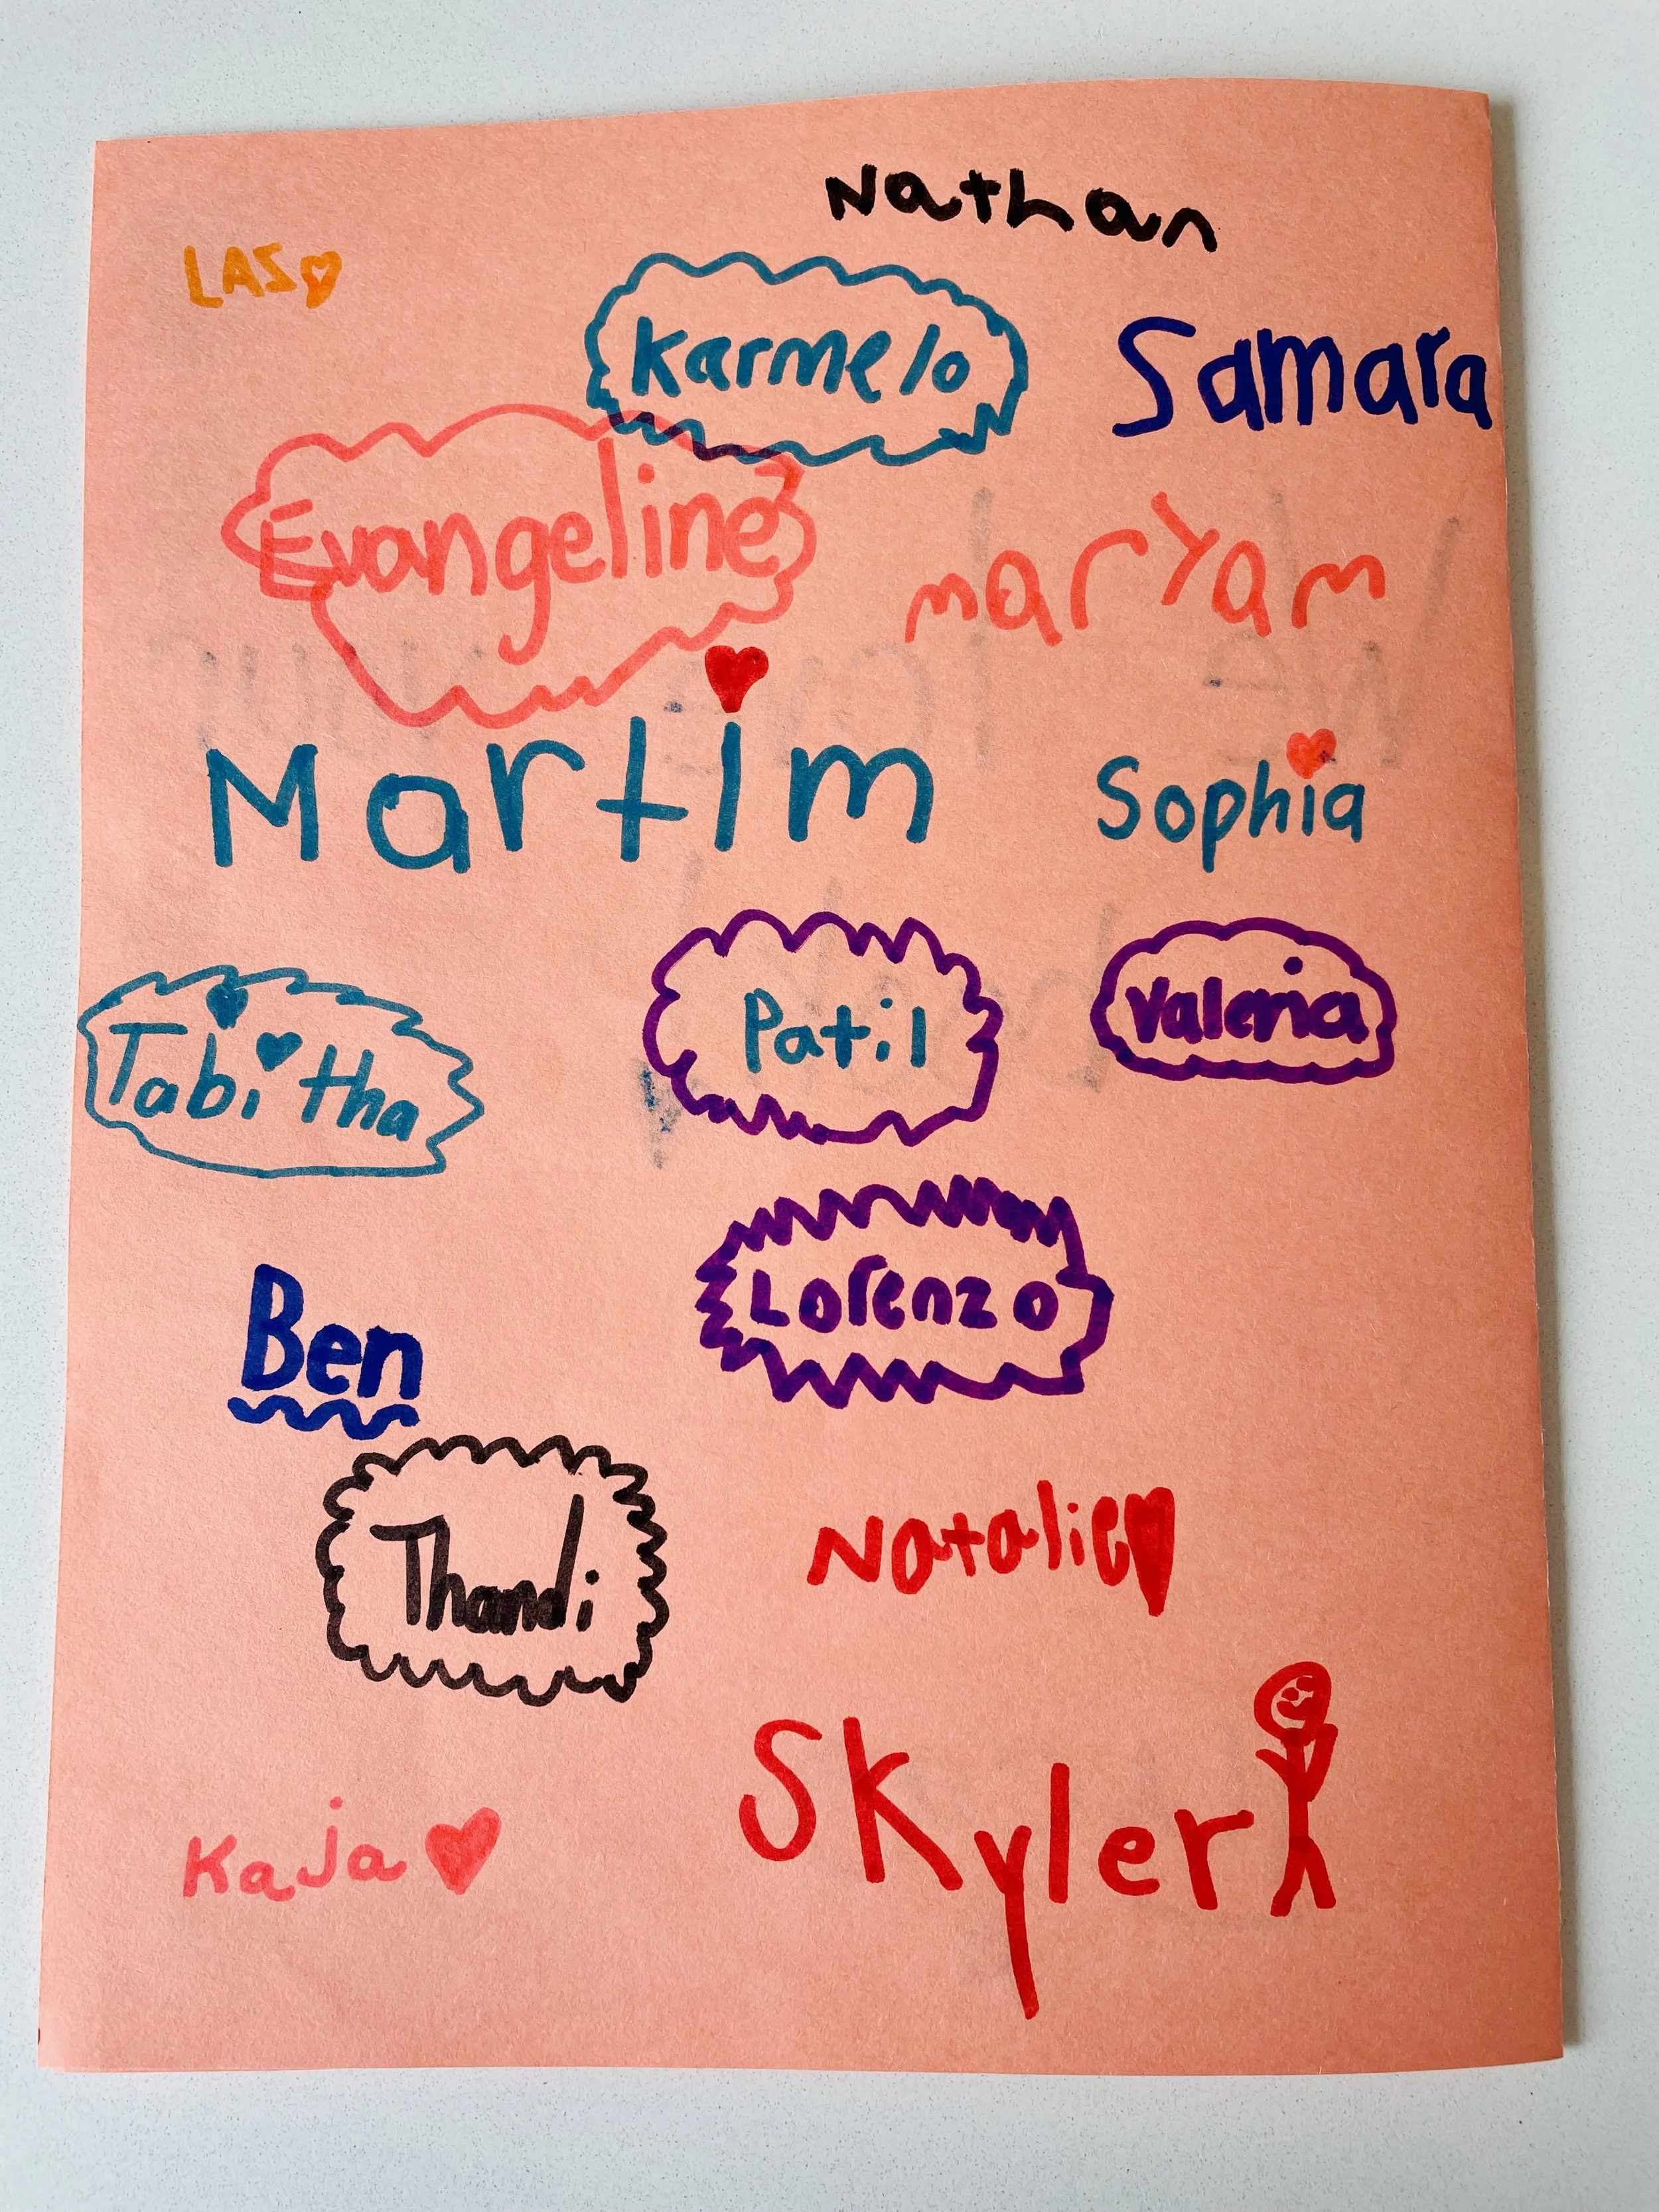 Nathan
LAS
Karmelo
Samara
Evangeline
maryam
Martim
Sophia
Tabitha
Patil
Valeria
Lorenzo
Ben
Thandi
Natalie
Skyler
Kaja